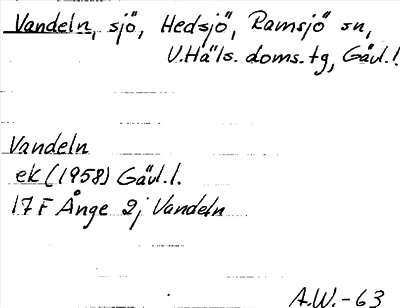 Vandeln, sjö, Hedsjö, Ramsjö sn,
V.Häls. doms.tg, Gävl.l.
Vandeln
ek (1958) Gävl.l.
17 F Ånge 2j Vandeln
A.W.-63